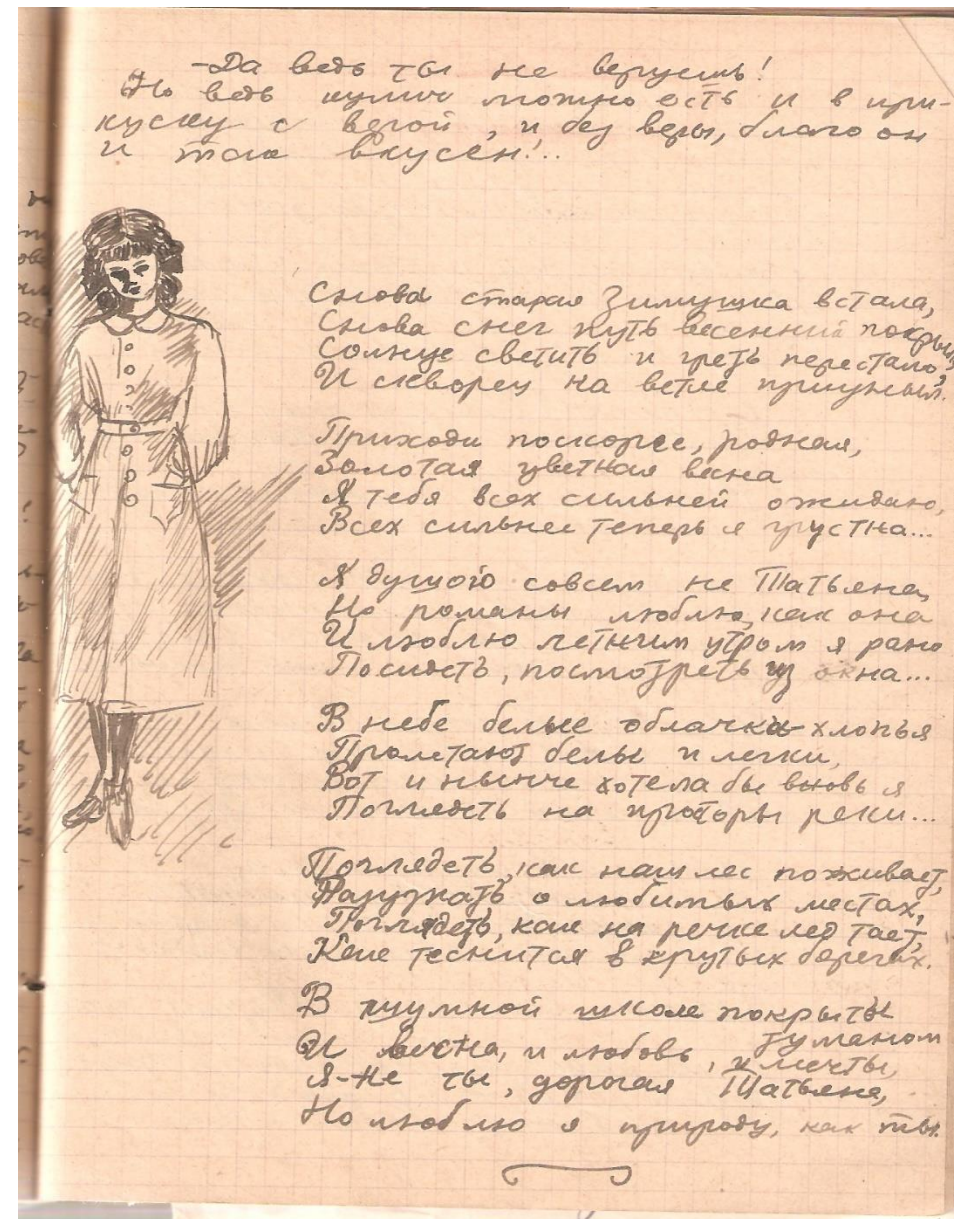 -Да ведь ты не веруешь!
Но ведь кулич можно есть и в при-
куску с верой, и без веры, благо он
и так вкусен!..
Снова старая Зимушка встала,
Снова снег путь весенний покрыл,
Солнце светить и греть перестало,
И скворец на ветле приуныл.
Приходи поскорее, родная,
Золотая цветная весна
Я тебя всех сильней ожидаю,
Всех сильнее теперь я грустна...
Я душою совсем не Татьяна,
Но романы люблю, как она
И люблю летним утром я рано
Посидеть, посмотреть из окна...
В небе белые облачка-хлопья
Пролетают белы и легки,
Вот и нынче хотела бы вновь я
Поглядеть на просторы реки...
Поглядеть, как наш лес поживает,
Разузнать о любимых местах,
Поглядеть, как на речке лед тает,
Как теснится в крутых берегах.
В шумной школе покрыты
туманом
И весна, и любовь, и мечты,
Я-не ты, дорогая Татьяна,
Но люблю я природу, как ты.